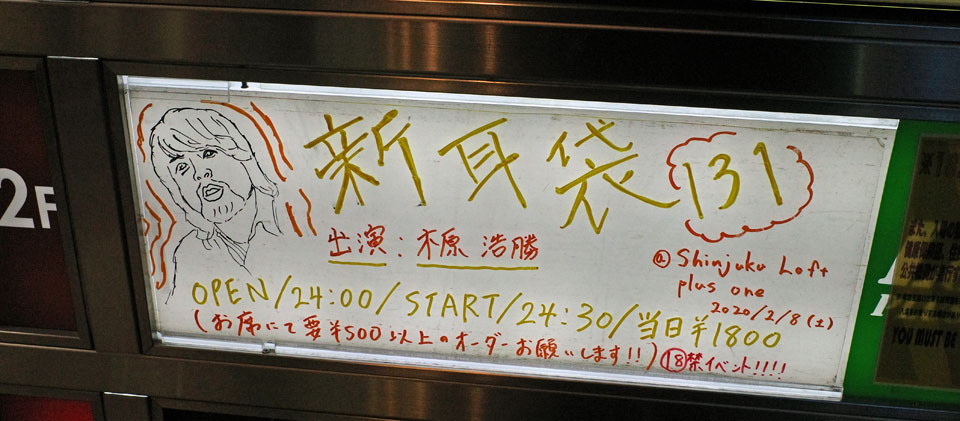 2F
新耳袋 131
出演:木原 浩勝
@ Shinjuku Loft
plus one
2020/2/8(土)
OPEN/24:00/START/24:30/当日¥1800
(お席にて要¥500以上のオーダーお願いします!!)⑱禁イベント!!!!
YOU MUST BE